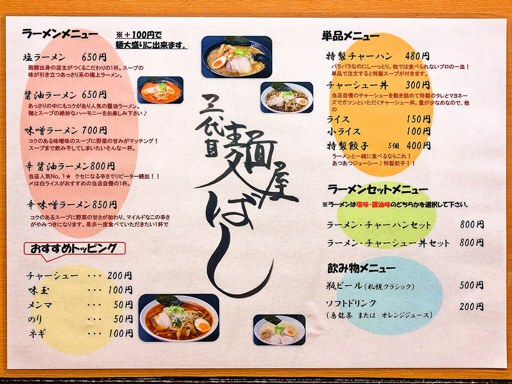 ラーメンメニュー
※+100円で
麺大盛りに出来ます。
塩ラーメン 650円
函館出身の店主がつくるこだわりの1杯。スープの
味が引き立つあっさり系の極上ラーメン。
醤油ラーメン 650円
あっさりの中にもコクがあり人気の醤油ラーメン。
麺とスープの絶妙なハーモニーをお楽しみ下さい♪
味噌ラーメン 700円
コクのある味噌味のスープに野菜の甘みがマッチング!
スープまで飲み干してしまいたいそんな一杯。
辛醤油ラーメン 800円
当店人気No.1★ クセになる辛さでリピーター続出!!
〆は白ライスがおすすめの当店自慢の1杯。
辛味噌ラーメン 850円
コクのあるスープに野菜の甘さが加わり、マイルドなこの辛さ
がやみつきになります。是非一度食べていただきたい1杯で
おすすめトッピング
チャーシュー ・・・ 200円
味玉 ・・・ 100円
メンマ ・・・ 50円
のり ・・・ 50円
ネギ ・・・ 100円
三代目
麺屋
ばし
単品メニュー
特製チャーハン 480円
パラパラなのにしーっとり。他では食べられないプロの一皿!
単品で注文すると特製スープが付きます。
チャーシュー丼 300円
当店自慢のチャーシューを敷き詰めて特製のタレとマヨネー
ズでガツンといただくチャーシュー丼。量が少なめなので、他
の
ライス 150円
小ライス 100円
特製餃子 5個 400円
ラーメンと一緒に食べるならこれ!
あつあつジューシー♪特製餃子!!
ラーメンセットメニュー
ラーメンは塩味・醤油味のどちらかを選択して下さい。
ラーメン・チャーハンセット 800円
ラーメン・チャーシュー丼セット 800円
飲み物メニュー
瓶ビール(札幌クラシック) 500円
ソフトドリンク 200円
(烏龍茶 または オレンジジュース)